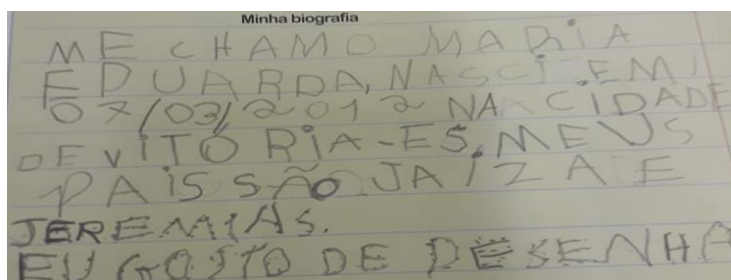 Minha biografia
ME CHAMO MARiA
EDUARDA, NASCi EM
07/03/2012 NA CiDADE
DE ViTÓRiA-ES, MEUS
PAiS SÃO JAiZA E
JEREMiAS.
EU GOSTO DE DESENHA